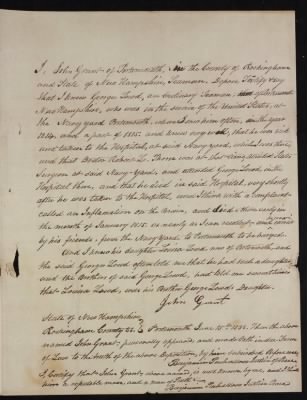 I, John Grant of Portsmouth, in the County of Rockingham
and State of New Hampshire, Seaman, Depose Testify & say
that I knew George Lowd, an Ordinary Seaman, of Portsmouth
New Hampshire, who was in the service of the United States, at
the Navy yard Portsmouth, where I saw him often, in the year
1814, and a part of 1815, and knew very well, that he was sick
and taken to the Hospital, at said Navy Yard, while I was there,
and that Doctor Robert L. Thorn was at that time, United States
Surgeon at said Navy-Yard, and attended George Lowd, in the
Hospital there, and that he died in said Hospital, very shortly
after he was taken to the Hospital, was I think with a complaint
called an Inflamation on the brain, and he died there early in
the month of January 1815, as nearly as I can recollect, and carried
by his friends, from the Navy Yard to Portsmouth to be buried.
And I know his daughter Lowd now of Portsmouth, and
the said George Lowd often told me that he had such a daughter,
and the Brother of said George Lowd, had told me sometimes
that Louisa Lowd, was his Brother George Lowd's Daughter.
John Grant
State of New Hampshire
Rockingham County SS. Portsmouth June 15th Then the above
named John Grant, personally appeared and made Oath in due Form
of Law to the truth of the above deposition, by him subscribed before me,
Justice of Peace
I Certify that John Grant, above named, is well known by me, and I think
him a reputable man, and a man of Truth.
Justice Peace